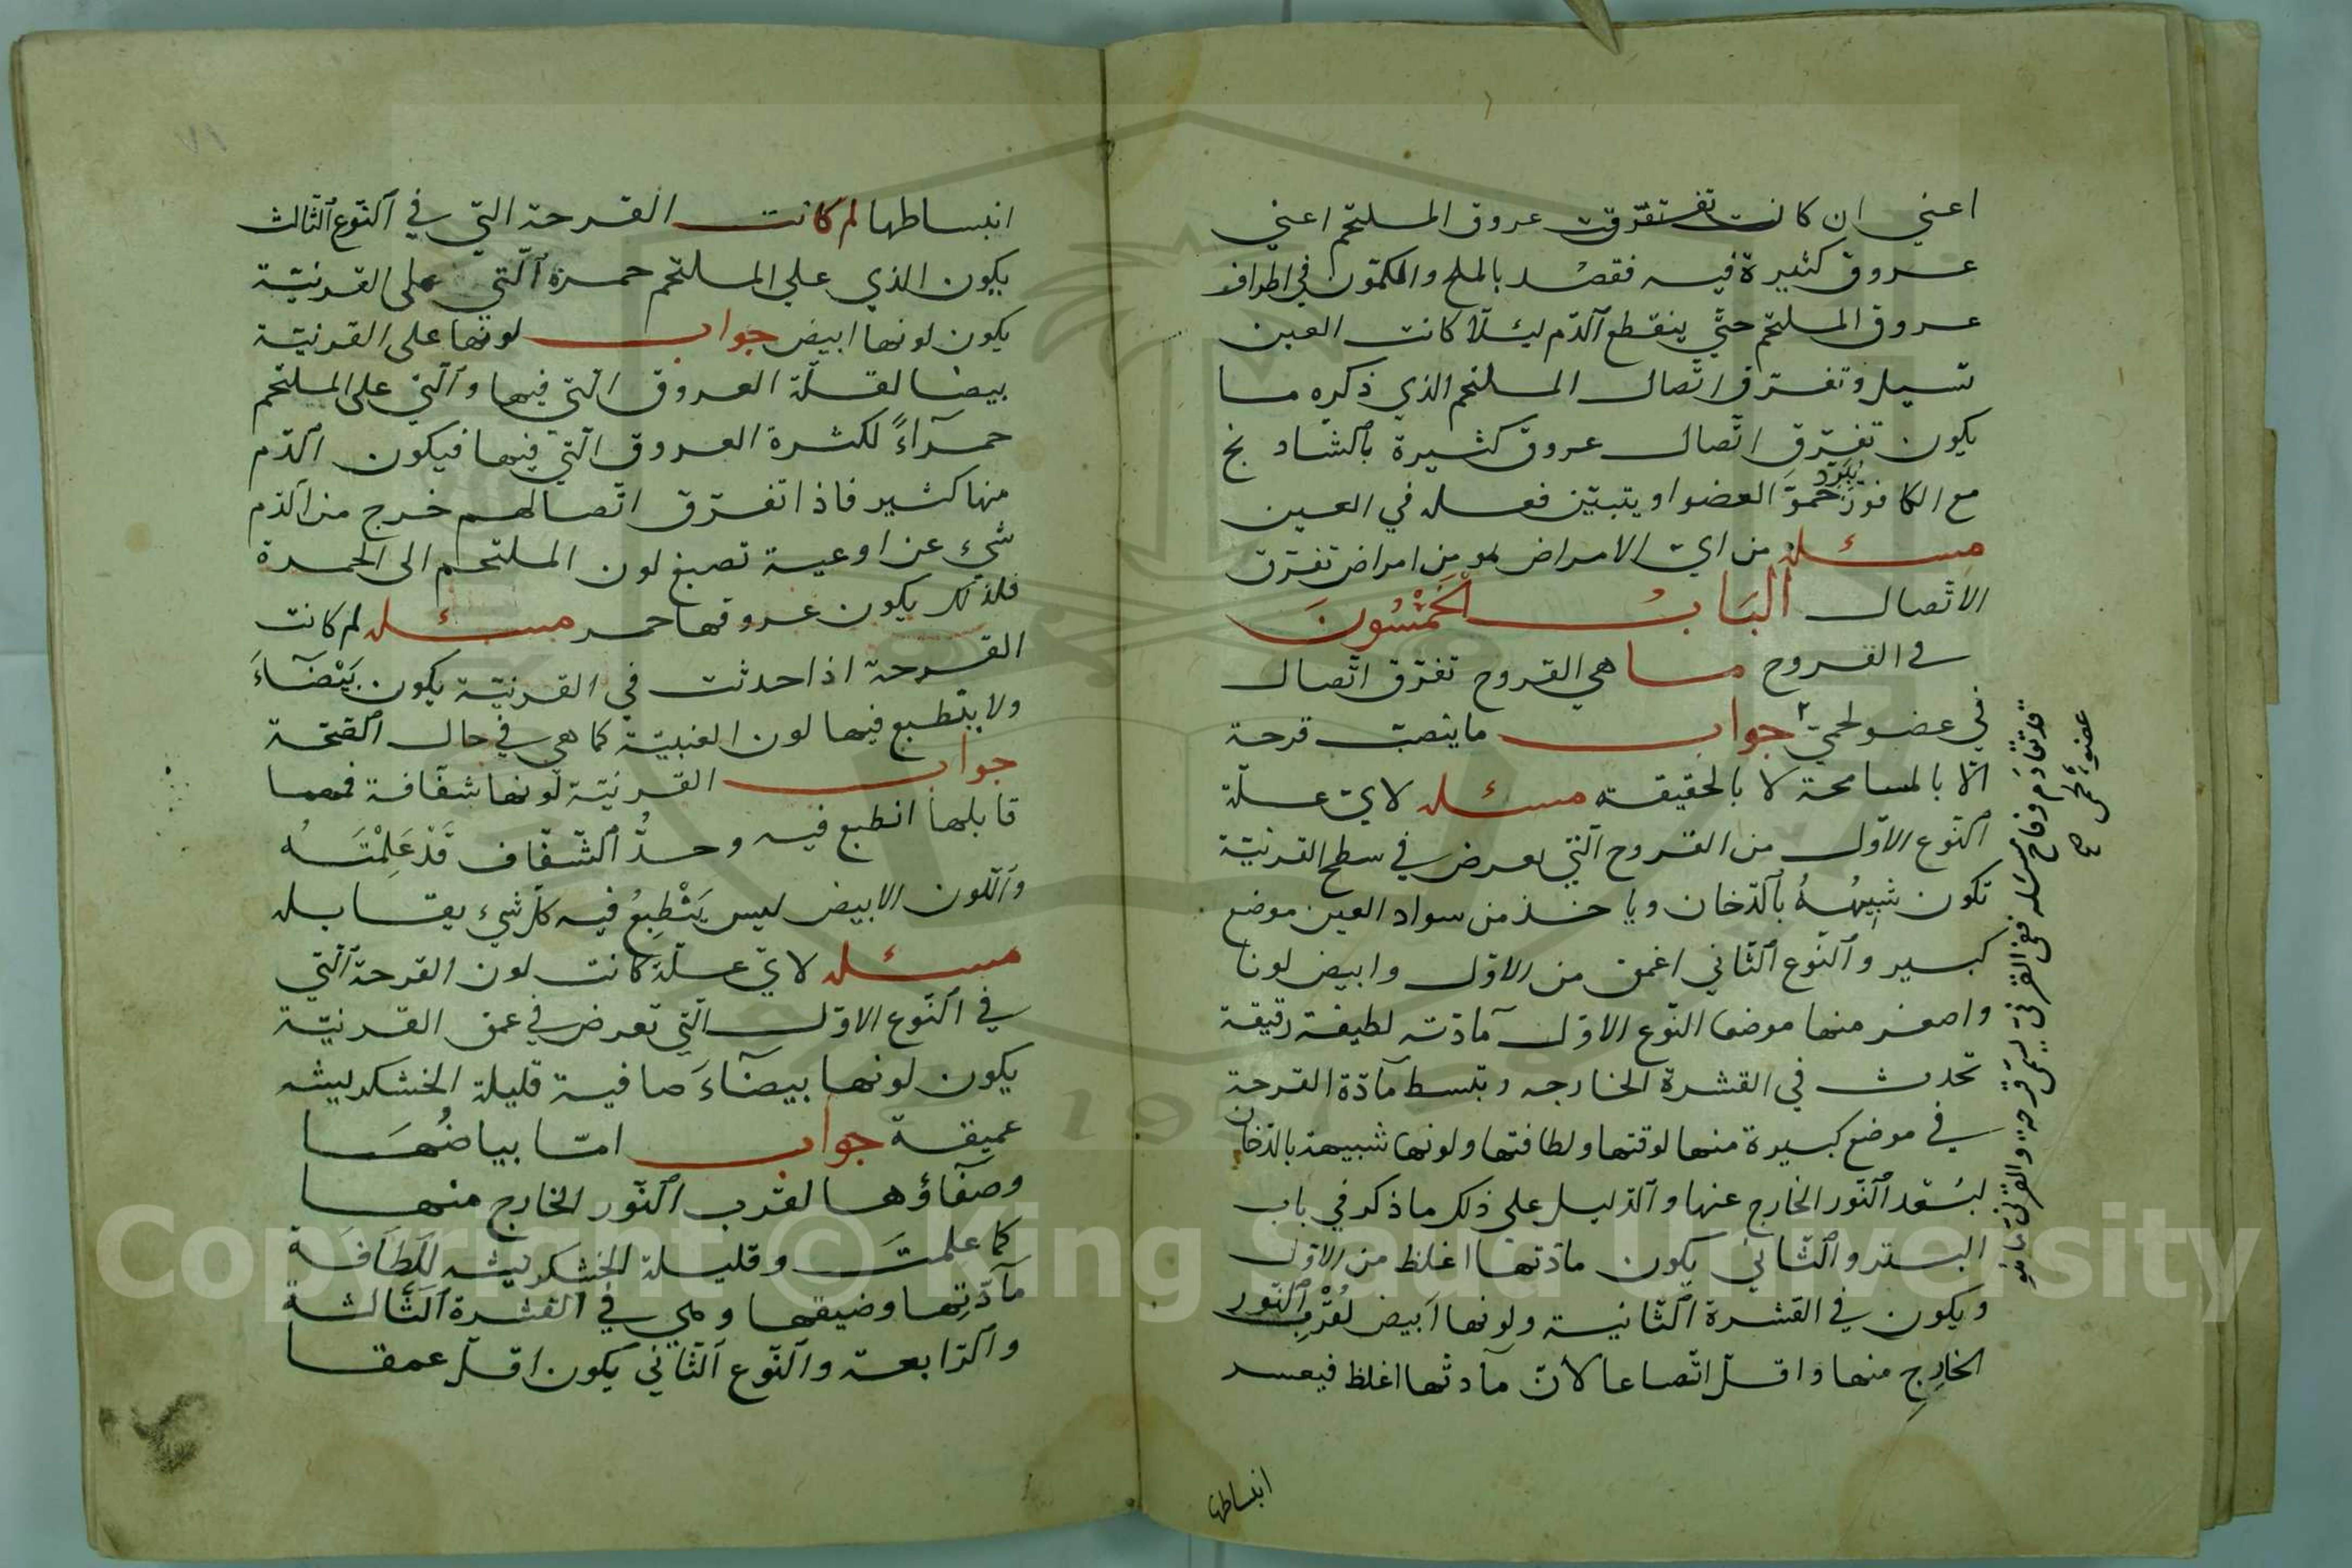 اعني ان كانت تفرقت عروق الملتحم اعني
عروق كثيرة فيه فقصد بالملح والكمون في اطراف
عروق الملتحم حتي ينقطع الدم ليئلا كانت العين
تسيل وتفرق اتصال الملتحم الذي ذكره ما
يكون تفرق اتصال عروق كثيرة بالشاد نج
مع الكافور يبرد حمو العضو او يتبين فعله في العين
مسئله من اي الامراض هو من امراض تفرق
الاتصال الباب الخمسون
في القروح ما هي القروح تفرق اتصال
في عضو لحمي جواب ما ينصب قرحة
الا بالمسامحة لا بالحقيقه مسئله لاي علة
النوع الاول من القروح التي يعرض في سطح القرنية
تكون شبيهه بالدخان وياخذ من سواد العين موضع
كبير والنوع الثاني اغمق من الاول وابيض لونا
واصغر منها موضعا النوع الاول مادته لطيفة رقيقة
تحدث في القشرة الخارجه وتبسط مادة القرحة
في موضع كبيرة منها لوقتها ولطافتها ولونها شبيهة بالدخان
لبعد النور الخارج عنها والدليل علي ذلك ما ذكر في باب
البثر والثاني يكون مادتها اغلظ من الاول
ويكون في القشرة الثانية ولونها ابيض لقرب النور
الخارج منها واقل اتصاعا لان مادتها اغلظ فيعسر
انبساطها
انبساطها لم كانت القرحة التي في النوع الثالث
يكون الذي علي الملتحم حمرة التي علي القرنية
يكون لونها ابيض جواب لونها علي القرنية
بيضا لقلة العروق التي فيها والتي علي الملتحم
حمراء لكثرة العروق التي فيها فيكون الدم
منها كثير فاذا تفرق اتصالهم خرج من الدم
شيء عن اوعية تصبغ لون الملتحم الي الحمرة
فلذلك يكون عروقها حمر مسئله لم كانت
القرحة اذا حدثت في القرنية يكون بيضاء
ولا ينطبع فيها لون العنبية كما هي في حال الصحة
جواب القرنية لونها شفافة فمهما
قابلها انطبع فيه وحد الشفاف قد علمته
واللون الابيض ليس ينطبع فيه كل شيء يقابله
مسئله لاي علة كانت لون القرحة التي
في النوع الاول التي تعرض في عمق القرنية
يكون لونها بيضاء صافية قليلة الخشكريشه
عميقة جواب اما بياضها
وصفاؤها لقرب النور الخارج منها
كما علمت وقليلة الخشكريشه للطافة
مادتها وضيقها وهي في القشرة الثالثة
والرابعة والنوع الثاني يكون اقل عمقا
Copyright © King Saud University